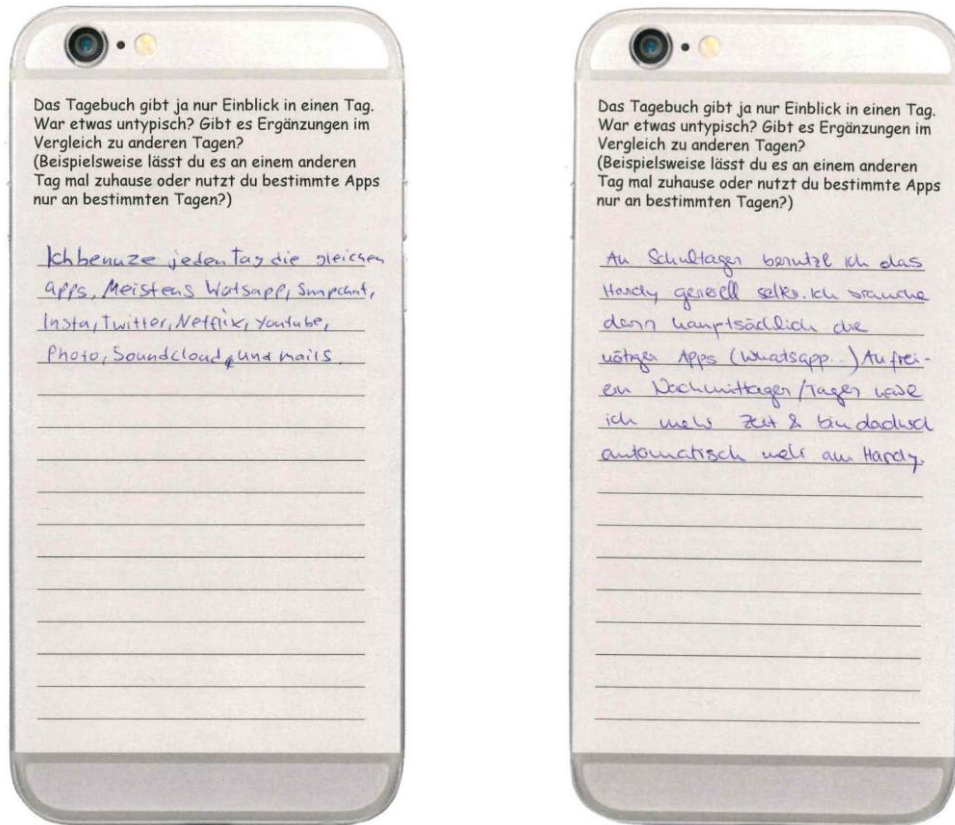 Das Tagebuch gibt ja nur Einblick in einen Tag.
War etwas untypisch? Gibt es Ergänzungen im
Vergleich zu anderen Tagen?
(Beispielsweise lässt du es an einem anderen
Tag mal zuhause oder nutzt du bestimmte Apps
nur an bestimmten Tagen?)
Ich benuze jeden Tag die gleichen
apps, Meistens Watsapp, Snapchat,
Insta, Twitter, Netflix, Youtube,
Photo, Soundcloud, und mails.
Das Tagebuch gibt ja nur Einblick in einen Tag.
War etwas untypisch? Gibt es Ergänzungen im
Vergleich zu anderen Tagen?
(Beispielsweise lässt du es an einem anderen
Tag mal zuhause oder nutzt du bestimmte Apps
nur an bestimmten Tagen?)
An Schultagen benutze ich das
Handy generell selten. Ich brauche
dann hauptsächlich die
nötigen Apps (Whatsapp...) An frei-
en Nachmittagen/Tagen habe
ich mehr Zeit & bin dadurch
automatisch mehr am Handy.